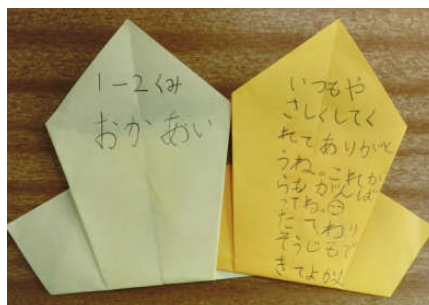 1-2くみ
おか あい
いつもや
さしくしてく
れてありがと
うね。これか
らもがんば
ってね。
たてわり
そうじもで
きてよか